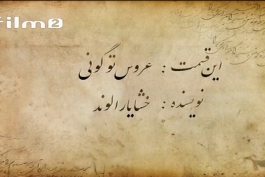 film2
این قسمت : عروس توگونی
نویسنده : خشایار الوند